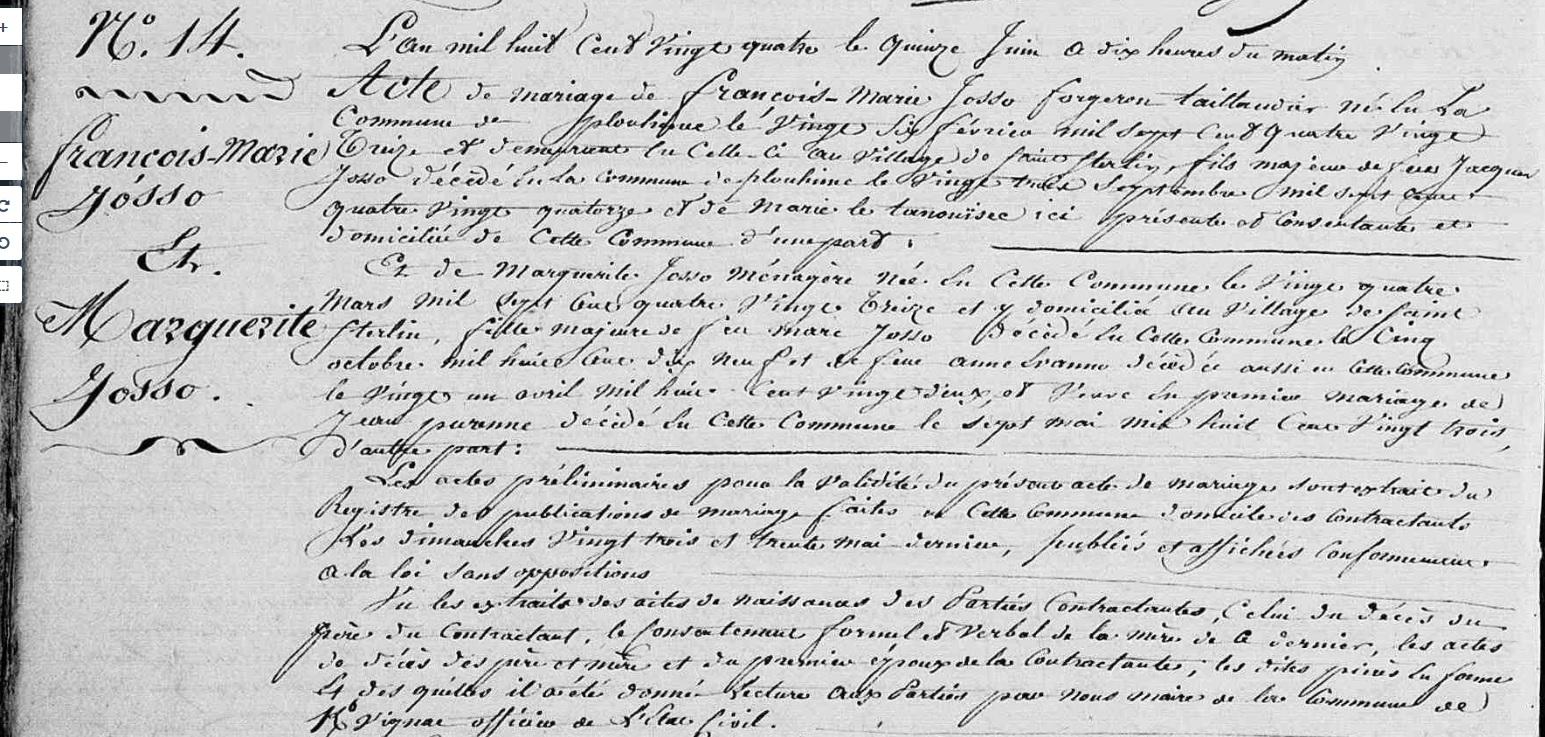 N.º 14.
François-Marie
Josso
Et.
Marguerite
Josso.
L'an mil huit Cent Vingt quatre le quinze Juin a dix heures du matin
Acte de mariage de françois-Marie Josso forgeron taillandier né en La
Commune de plouhinec le Vingt six février mil sept Cent Quatre Vingt
Treize et demeurant en Celle-Ci au Village de Saint Sterlin, fils majeur de feu Jacques
Josso décédé en La Commune de plouhinec le Vingt trois Septembre mil sept Cent
quatre Vingt quatorze et de Marie le tanouïsec ici présente et Consentante et
domiciliée de Cette Commune d'unepart;
Et de Marguerite Josso Ménagère Née en Cette Commune le Vingt quatre
Mars Mil Sept Cent quatre Vingt Treize et y domiciliée au Village de Saint
Sterlin, fille majeure de feu marc Josso décédé en Cette Commune le Cinq
octobre mil huit Cent dix neuf et de feue anne décédée aussi en Cette Commune
le Vingt un avril mil huit Cent Vingt deux, et Veuve en premier mariage de
Jean puranne décédé en Cette Commune le sept mai mil huit Cent Vingt trois,
d'autre part:
Les actes préliminaires pour la validité du présent acte de mariage sont extrait du
Registre des publications de mariage faites en Cette Commune domicile des Contractants
Les dimanches Vingt trois et trente mai dernier, publiés et affichées Conformement
a la loi sans oppositions
Vu les extraits des actes de naissances des Parties Contractantes, Celui du décès du
père du Contractant, le Consentement formel et Verbal de la mère de Ce dernier, les actes
de décès des père et mère et du premier époux de la Contractante; les dites pièces en forme
Et des quelles il a été donné Lecture aux Parties par nous maire de la Commune de
Kvignac officier de L'Etat Civil.